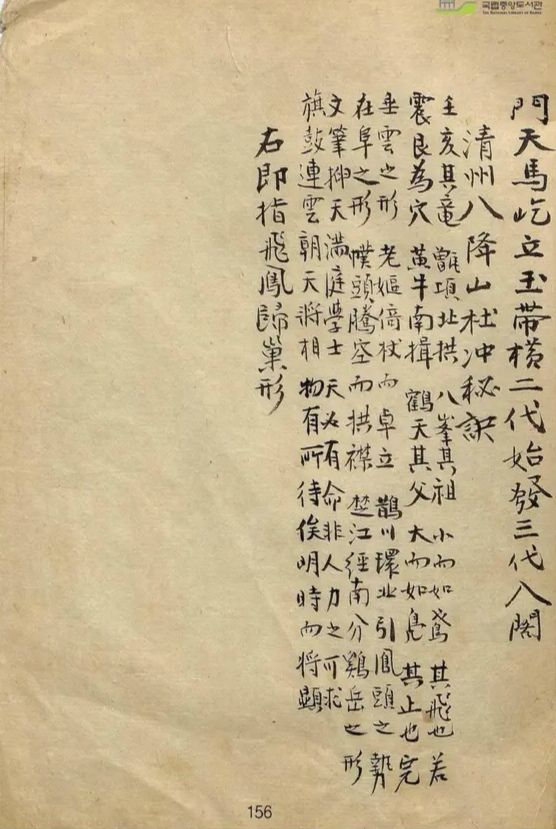 국립중앙도서관
THE NATIONAL LIBRARY OF KOREA
門天馬屹立玉帶橫二代始發三代入閣
清州八降山杜冲秘訣
壬亥其竜 項北拱 八峯其祖 小而如鴦 其飛也 若
震艮為穴 黃牛南揖 鶴天其父 大而如鳧 其止也 完
垂雲之形 老嫗倚杖而卓立 鵲川環北引鳳頭之勢
在阜之形 幞頭騰空而拱襟 楚江經南分鷄岳之形
文筆揷天 滿庭學士 天必有命非人力之可求
旗鼓連雲 朝天將相 物有所待俟明時而將顯
右即指飛鳳歸巢形
156